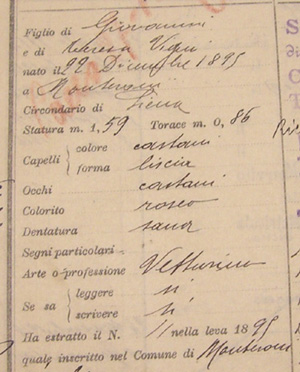 Figlio di Giovanni
e di Teresa Vigni
nato il 22 Dicembre 1895
a Monteroni
Circondario di Siena
Statura m. 1,59 Torace m. 0,86
Capelli { colore castani
forma liscia
Occhi castani
Colorito roseo
Dentatura sana
Segni particolari
Arte o professione Vetturino
Se sa { leggere si
scrivere si
Ha estratto il N. 11 nella leva 1895
quale inscritto nel Comune di Monteroni